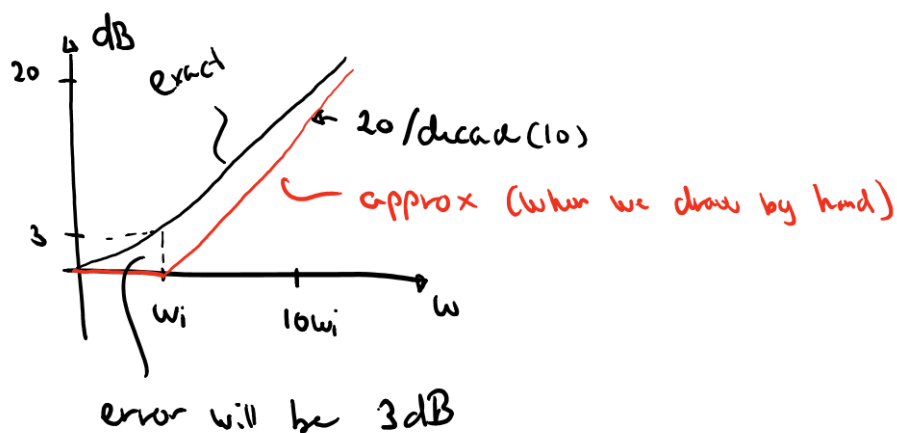 dB
20
exact
20/decad(10)
approx (when we draw by hand)
3
wi
10wi
w
error will be 3dB